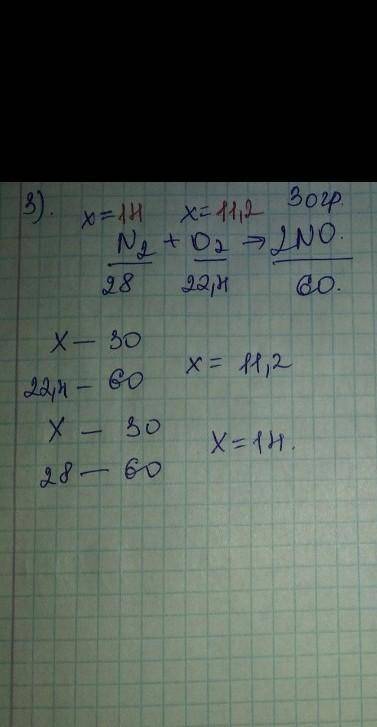 3).
x=14 x=11,2 30гр.
N2 + O2 → 2NO.
28 22,4 60.
X — 30
22,4 — 60
x = 11,2
X — 30
28 — 60
X=14.